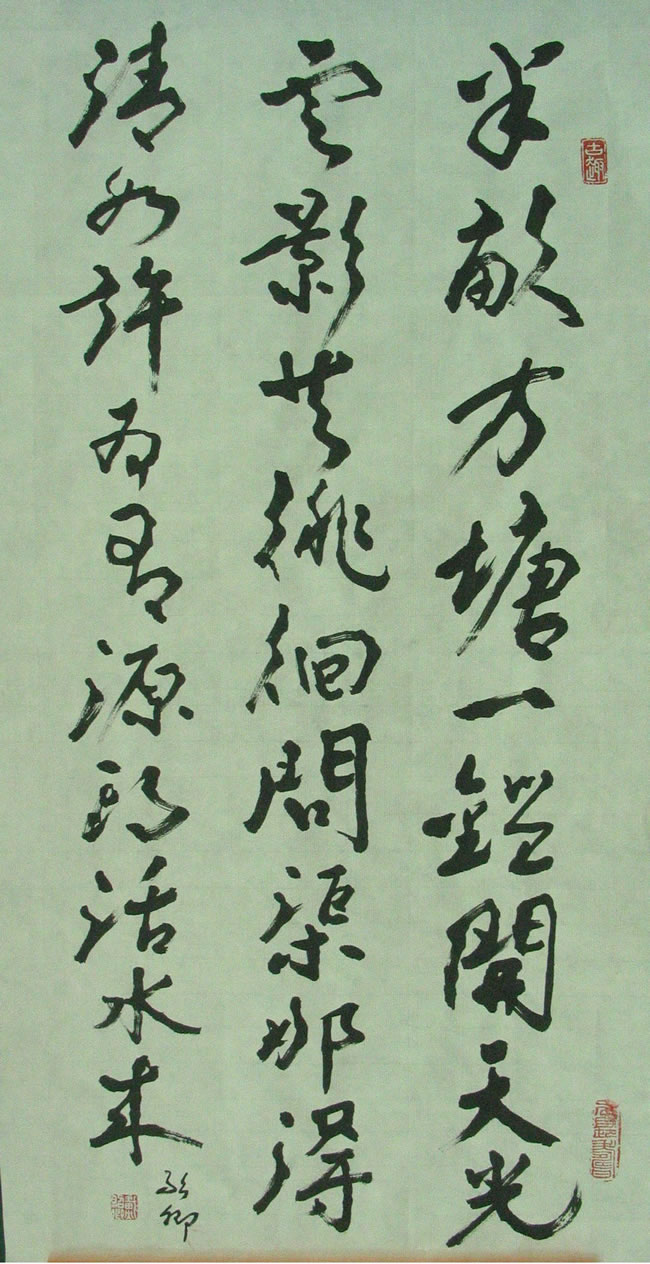 半畝方塘一鑑開天光
雲影共徘徊問渠那得
清如許為有源頭活水來
敬卿
古趣